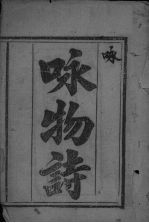 咏
咏物詩